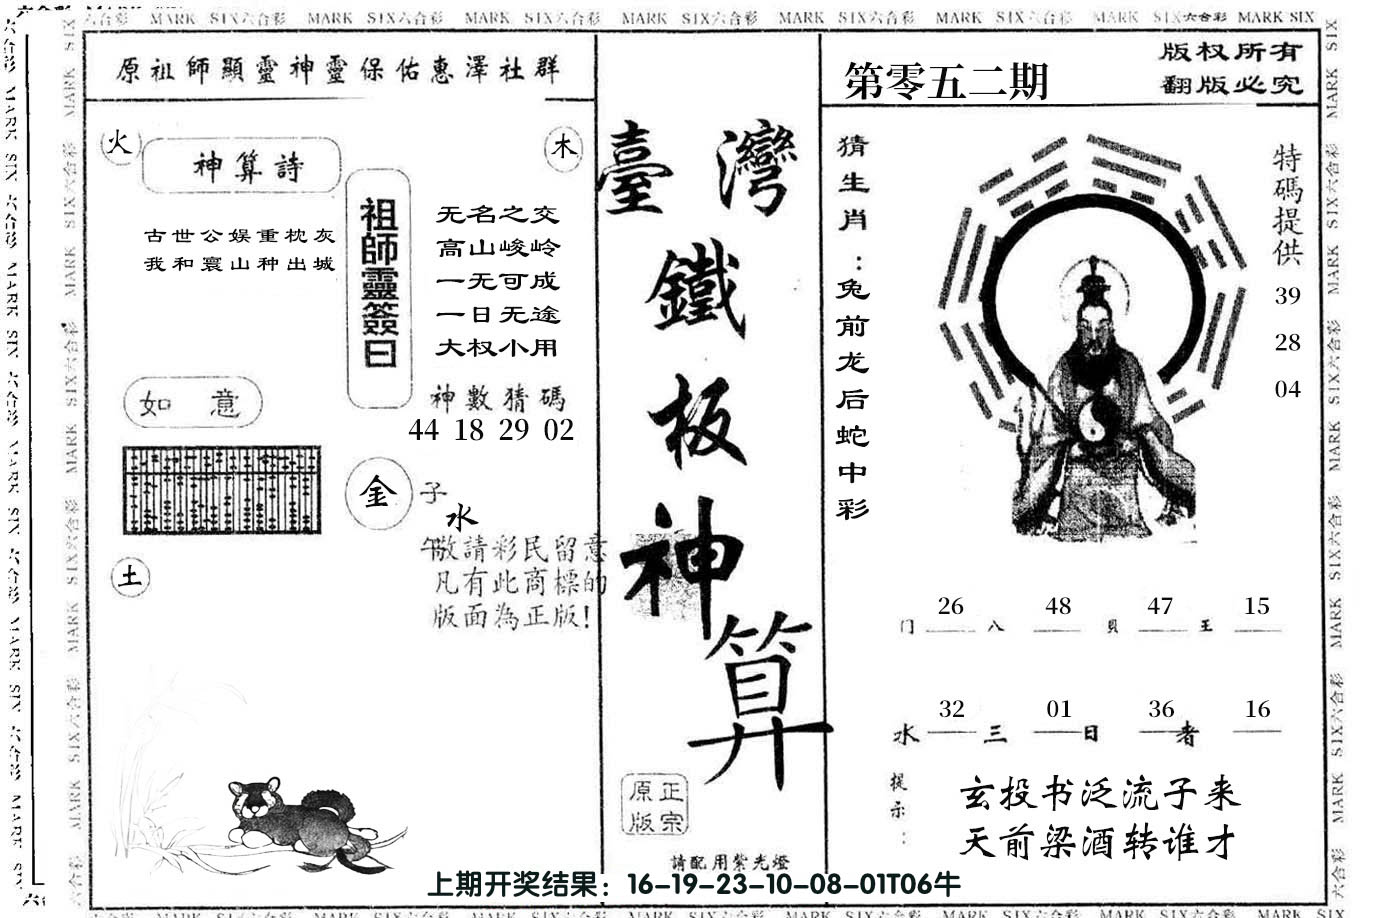 六合彩 MARK SIX六合彩 MARK SIX六合彩 MARK SIX六合彩 MARK SIX六合彩 MARK SIX六合彩 MARK SIX六合彩 MARK SIX六合彩 MARK SIX
原祖師顯靈神靈保佑惠澤社群
火
木
神算詩
古世公娱重枕灰
我和寰山种出城
祖師靈簽曰
无名之交
高山峻岭
一无可成
一日无途
大权小用
神數猜碼
44 18 29 02
如意
金
子
水
午
土
敬請彩民留意
凡有此商標的
版面為正版!
臺灣
鐵
板
神
算
正宗
原版
請配用紫光燈
第零五二期
版权所有
翻版必究
猜生肖：兔前龙后蛇中彩
特碼提供
39
28
04
26 48 47 15
门 八 贝 王
32 01 36 16
水 三 日 者
提示：
玄投书泛流子来
天前梁酒转谁才
上期开奖结果：16-19-23-10-08-01T06牛